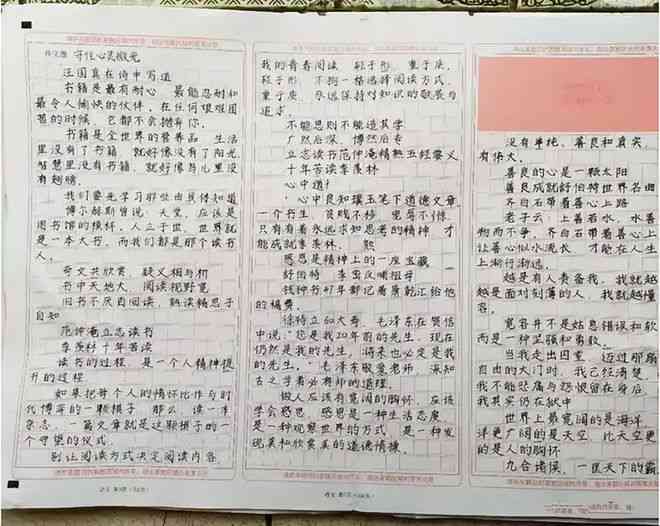 守住心灵微光
汪国真在诗中写道
书籍是最有耐心 最能忍耐和
最令人愉快的伙伴，在任何艰难困
苦的时候，它都不会抛弃你。
书籍是全世界的营养品 生活
里没有了书籍，就好像没有了阳光
智慧里没有书籍，就好像鸟儿里没
有翅膀
我们要先学习那些由具体知道
博尔赫斯曾说：天堂，应该是
图书馆的模样，人立于世，世界就
是一本大书，而我们都是那个读书
人。
奇文共欣赏，疑义相与析
书中天地大，阅读视野宽
旧书不厌百阅读，熟读精思子
自知
范仲淹立志读书
季羡林十年苦读
读书的过程，是一个人精神提
升的过程
如果把每个人的情怀比作与时
代博弈的一颗棋子，那么，读一本
杂志，一篇文章就是这颗棋子的一
个守望的仪式
别让阅读方式决定阅读内容
我的青春阅读 轻于形，重于质，
轻于形，不拘一格选择阅读方式，
重于质，永远保持对知识的敬畏与
追求。
不能思则不能造其学
广然后深，博然后专
立志读书范仲淹精熟五经要义
十年苦读季羡林
心中道
心中良知璞玉笔下道德文章
一个书生，贫贱不移，宠辱不惊，
只有有着永远求知思考的精神 才
能成就季羡林。
感恩是精神上的一座宝藏
舒伯特 李密反哺祖母
钱钟书47年都记着原乾汇给他
的稿费。
徐特立60大寿，毛泽东在贺信
中说：“您是我20年前的先生，现在
仍然是我的先生，将来也必定是我
的先生。”毛泽东敬爱老师，深知
古之学者必有师的道理。
做人应该有宽阔的胸怀，应该
学会感恩，感恩是一种生活态度
是一种观察世界的方式，是一种发
现美和欣赏美的道德情操。
没有单纯、善良和真实
有伟大。
善良的心是一颗太阳
善良成就舒伯特世界名曲
齐白石带着善心上路
老子云：上善若水，水善
物而不争，齐白石带着善心上
让善心似水流长，才能在人生
上渐行渐远。
越是有人责备我，我就越
越是面对刻薄的人，我就越懂
容。
宽容并不是姑息错误和软
而是一种坚强和勇敢。
当我走出囚室，迈过那扇
自由的大门时，我已经清楚，
我不能悲痛与怨恨留在身后
我其实仍在狱中
世界上最宽阔的是海洋，
洋更广阔的是天空，比天空更
的是人的胸怀。
九合诸侯，一匡天下的霸